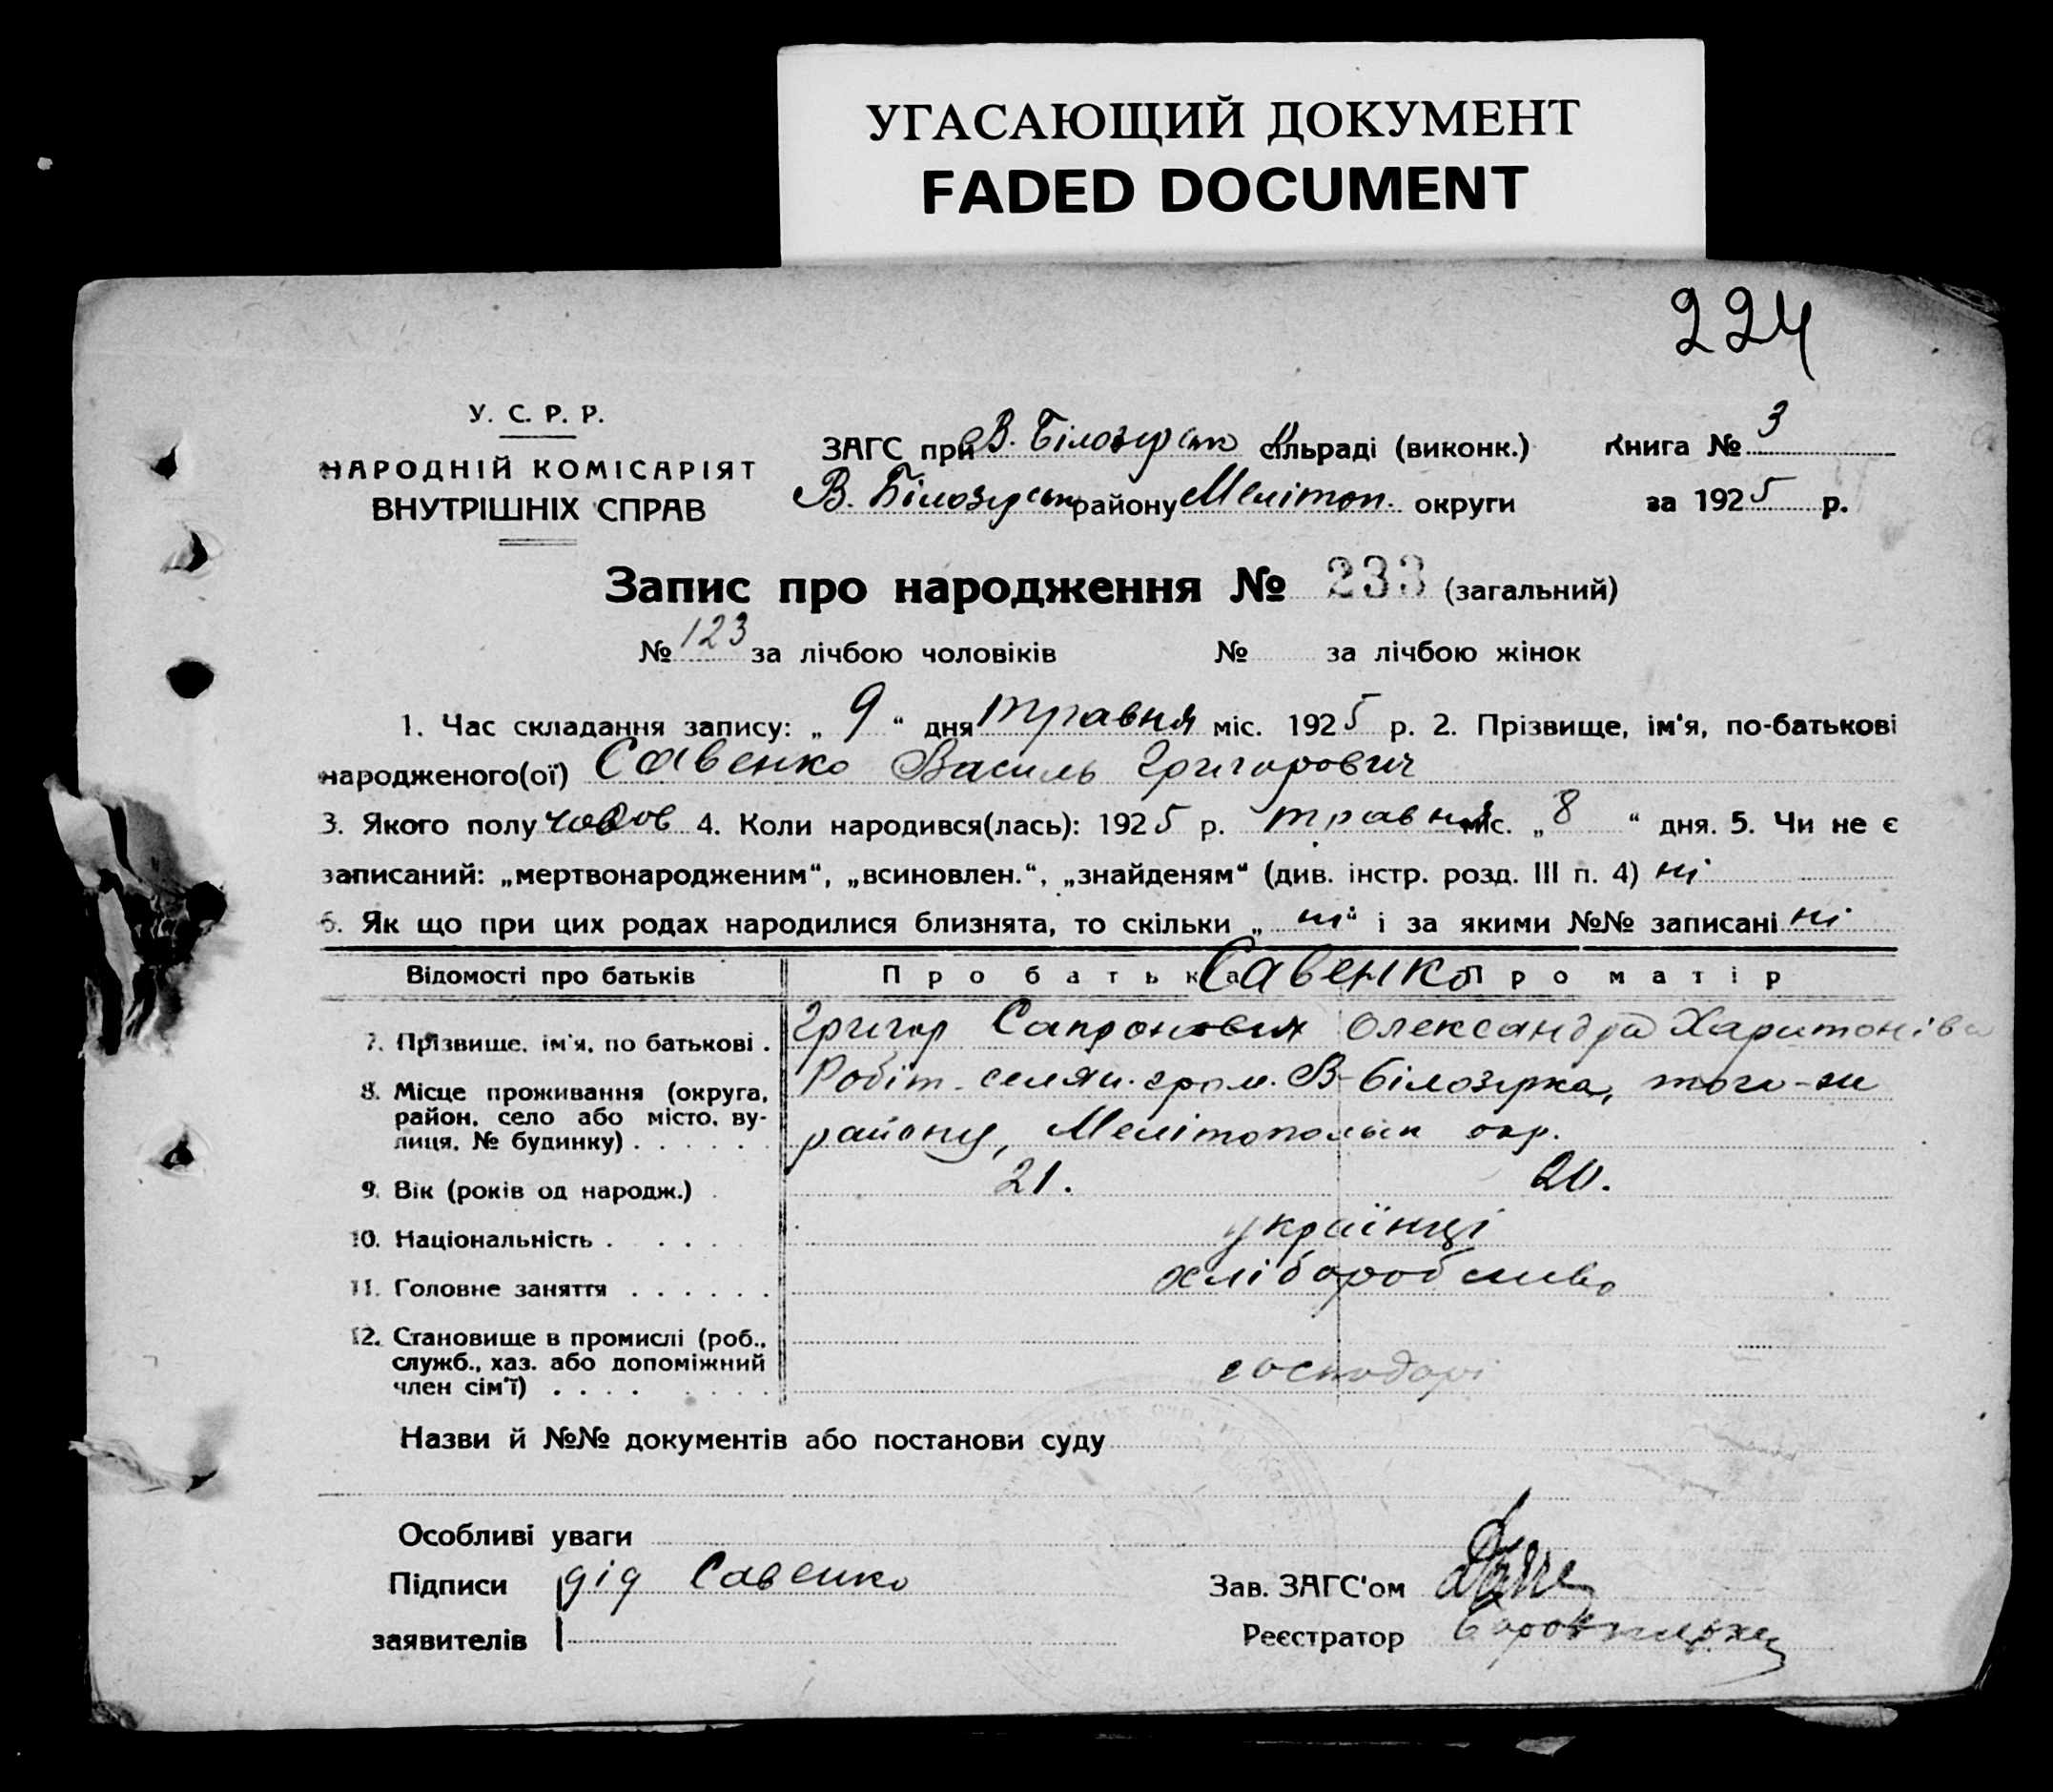 УГАСАЮЩИЙ ДОКУМЕНТ
FADED DOCUMENT
224
У. С. Р. Р.
НАРОДНІЙ КОМІСАРІЯТ
ВНУТРІШНІХ СПРАВ
ЗАГС при В. Білозерськ сільраді (виконк.) Книга № 3
В. Білозерськ району Мелітоп. округи за 1925 р.
Запис про народження № 233 (загальний)
№ 123 за лічбою чоловіків № за лічбою жінок
1. Час складання запису: „ 9 “ дня травня міс. 1925 р. 2. Прізвище, ім'я, по-батькові
народженого(ої) Савенко Василь Григорович
3. Якого полу чолов 4. Коли народився(лась): 1925 р. травня міс. „ 8 “ дня. 5. Чи не є
записаний: „мертвонародженим“, „всиновлен.“, „знайденям“ (див. інстр. розд. III п. 4) ні
6. Як що при цих родах народилися близнята, то скільки „ ні “ і за якими №№ записані ні
Відомості про батьків Про батька Савенко Про матір
7. Прізвище, ім'я, по батькові . Григор Сапронович Олександра Харитонівна
8. Місце проживання (округа, район, село або місто, вулиця, № будинку) . . . . . . Робіт-селян. гром. В-Білозірка, того-ж
району, Мелітопольск окр.
9. Вік (років од народж.) . 21. 20.
10. Національність . . . . українці
11. Головне заняття . . . . . . хліборобство
12. Становище в промислі (роб., служб., хаз. або допоміжний член сім'ї) . . . . господарі
Назви й №№ документів або постанови суду
Особливі уваги
Підписи дід Савенко Зав. ЗАГС'ом
заявителів Реєстратор